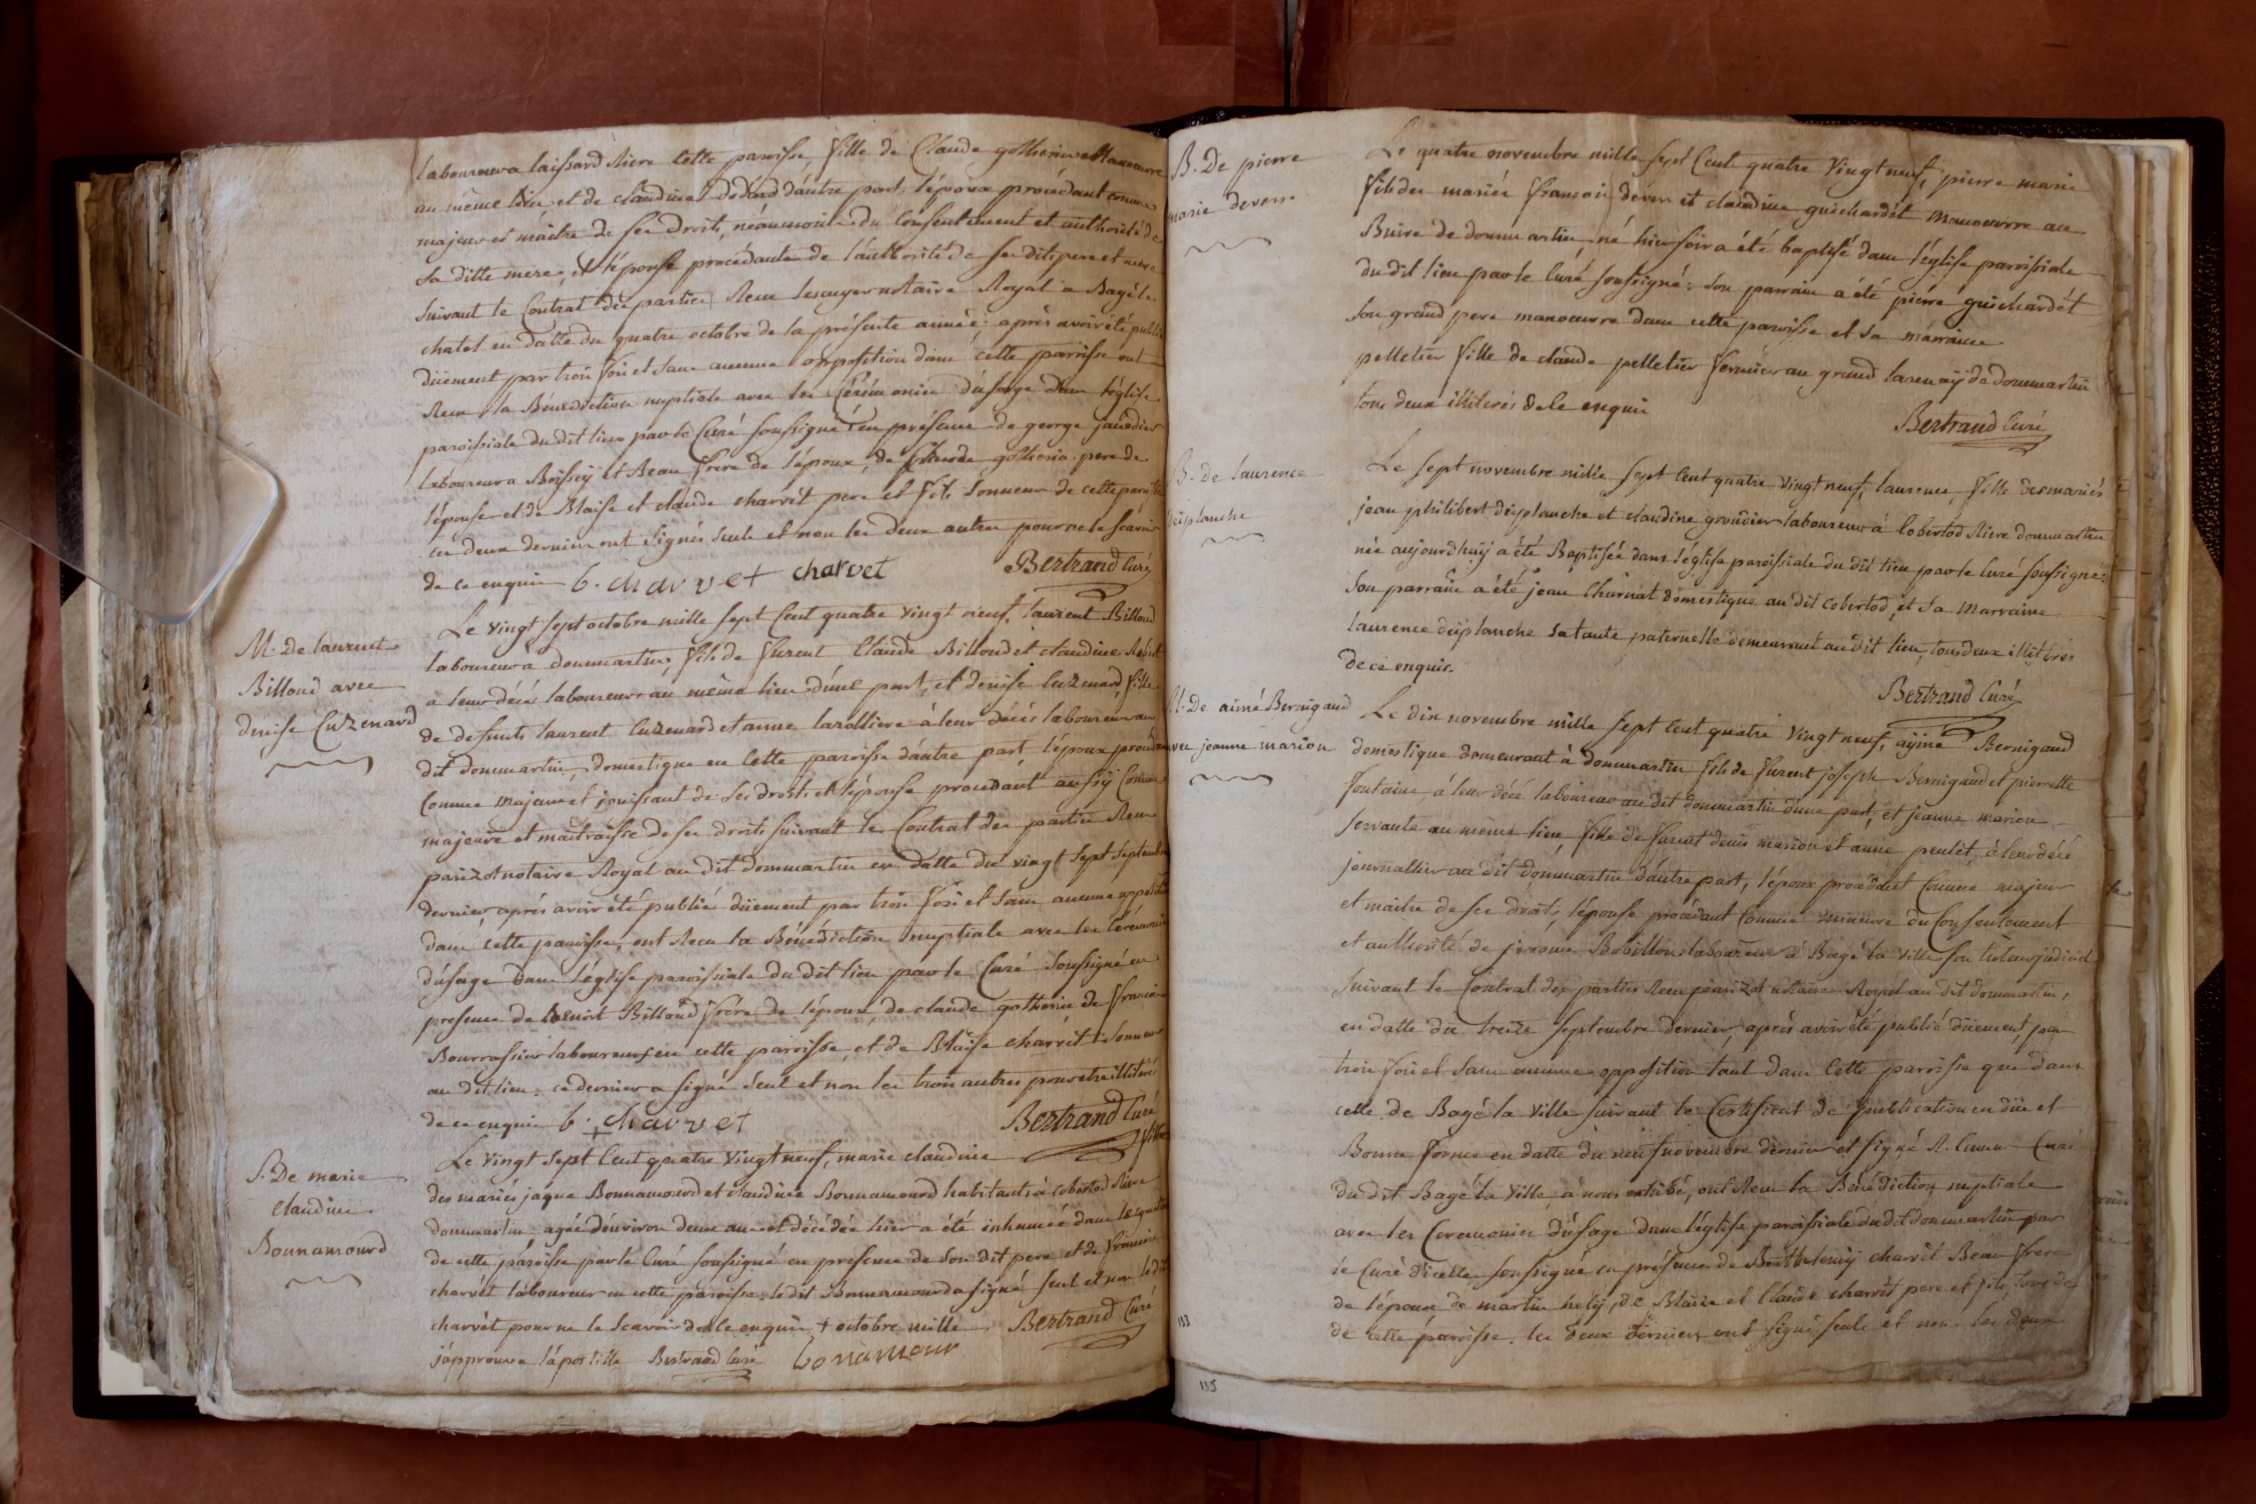 laboureur a laissard Riere Cette paroisse, fille de Claude gotheria Manoeuvre
au même lieu et de claudine d'autre part, l'époux procédant comme
majeur et maitre de ses droits, néanmoins du consentement et authorité de
sa ditte mere, et l'épouse procédante de l'authorité de ses dits pere et mere
suivant le Contrat des parties Reçu notaire Royal a Bagé le
chatel en datte du quatre octobre de la présente année; après avoir été publié
düement par trois fois et sans aucune opposition dans cette paroisse ont
Recu la Bénédiction nuptiale avec les Cérémonies d'usage dans l'église
paroissiale du dit lieu par le Curé soussigné en présence de george
laboureur a Boissey et Beau frere de l'époux, de Claude gotheria pere de
l'épouse et de Blaise et claude charvèt pere et fils sonneur de cette paroisse
ces deux derniers ont signés seuls et non les deux autres pour ne le scavoir
de ce enquis b. charvet charvet Bertrand Curé
M. De laurent
Billoud avec
denise Cuzenard
Le vingt sept octobre mille sept Cent quatre vingt neuf, laurent Billoud
laboureur à dommartin, fils de furent Claude Billoud et claudine
a leur décès laboureurs au même lieu d'une part, et denise Cuzenard, fille
de defunts laurent Cuzenard et anne à leur décès laboureur au
dit dommartin, domestique en Cette paroisse d'autre part, l'époux procédant
Comme majeur et jouissant de ses droits et l'épouse procédant aussy Comme
majeure et maitraisse de ses droits suivant le Contrat des parties Recu
parizot notaire Royal au dit dommartin en datte du vingt sept septembre
dernier, après avoir été publié düement par trois fois et sans aucune opposition
dans cette paroisse, ont Recu la Bénédiction nuptiale avec les Cérémonies
d'usage dans l'église paroissiale du dit lieu par le Curé soussigné en
presence de Benoit Billoud frère de l'époux, de claude gotheria de francois
Bourrassier laboureurs en cette paroisse, et de Blaise charvèt sonneur
au dit lieu, ce dernier a signé seul et non les trois autres pour etre illiterés
de ce enquis b. charvet Bertrand Curé
S. De marie
claudine
Bonnamourd
Le vingt sept + Cent quatre vingt neuf, marie claudine fille
des mariés jaque Bonnamourd et claudine Bonnamourd habitants à Cobertod Riere
dommartin agée d'environ deux ans et décédée hier a été inhumée dans le cimetiere
de cette paroisse par le Curé soussigné en presence de son dit pere et de francois
charvèt laboureur en cette paroisse. le dit Bonnamourd a signé seul et non le dit
charvèt pour ne le scavoir de ce enquis + octobre mille Bertrand Curé
j'approuve l'apostille Bertrand Curé bonamour
B. De pierre
marie deverr
Le quatre novembre mille sept Cent quatre vingt neuf, pierre marie
fils des mariés francois et claudine guichardèt manoeuvre au
Buire de dommartin né hier soir a été baptisé dans l'église paroissiale
du dit lieu par le Curé soussigné: son parrain a été pierre guichardèt
son grand pere manoeuvre dans cette paroisse et sa marraine
pelletier fille de claude pelletier fermier au grand de dommartin
tous deux illiterés de ce enquis
Bertrand Curé
B. De laurence
desplanche
Le sept novembre mille sept Cent quatre vingt neuf, laurence, fille des mariés
jean philibert desplanche et claudine laboureur à Cobertod Riere dommartin
née aujourdhuÿ a été Baptisée dans l'église paroissiale du dit lieu par le Curé soussigné:
son parrain a été jean Charnat domestique au dit Cobertod, et sa Marraine
laurence desplanche sa tante paternelle demeurant au dit lieu, tous deux illiterés
de ce enquis.
Bertrand Curé
M. De aimé Bernigaud
avec jeanne marion
Le dix novembre mille sept Cent quatre vingt neuf, aÿmé Bernigaud
domestique demeurant à dommartin fils de furent joseph Bernigaud et pierrette
fontaine, à leur décé laboureur au dit dommartin d'une part, et jeanne marion
servante au même lieu, fille de furent denis marion et anne peulèt, à leur décé
journallier au dit dommartin d'autre part, l'époux procédant Comme majeur
et maitre de ses droits, l'épouse procédant Comme mineure du Consentement
et authorité de jerome Bobillon laboureur à Bagé la ville son tuteur judiciel
suivant le Contrat des parties Recu parizot notaire Royal au dit dommartin,
en datte du treize septembre dernier, après avoir été publié düement, par
trois fois et sans aucune opposition tant dans Cette paroisse que dans
celle de Bagé la ville suivant le Certificat de publication en düe et
Bonne forme en datte du neuf novembre dernier et signé Curé
du dit Bagé la ville à nous exhibé, ont Recu la Bénédiction nuptiale
avec les Ceremonies d'usage dans l'église paroissiale du dit dommartin par
le Curé d'icelle soussigné en présence de Barthelemÿ charvèt Beau frere
de l'époux, de martin helÿ, de Blaise et Claude charvèt pere et fils, tous de
de cette paroisse. les deux derniers ont signé seuls et non les deux
133
135